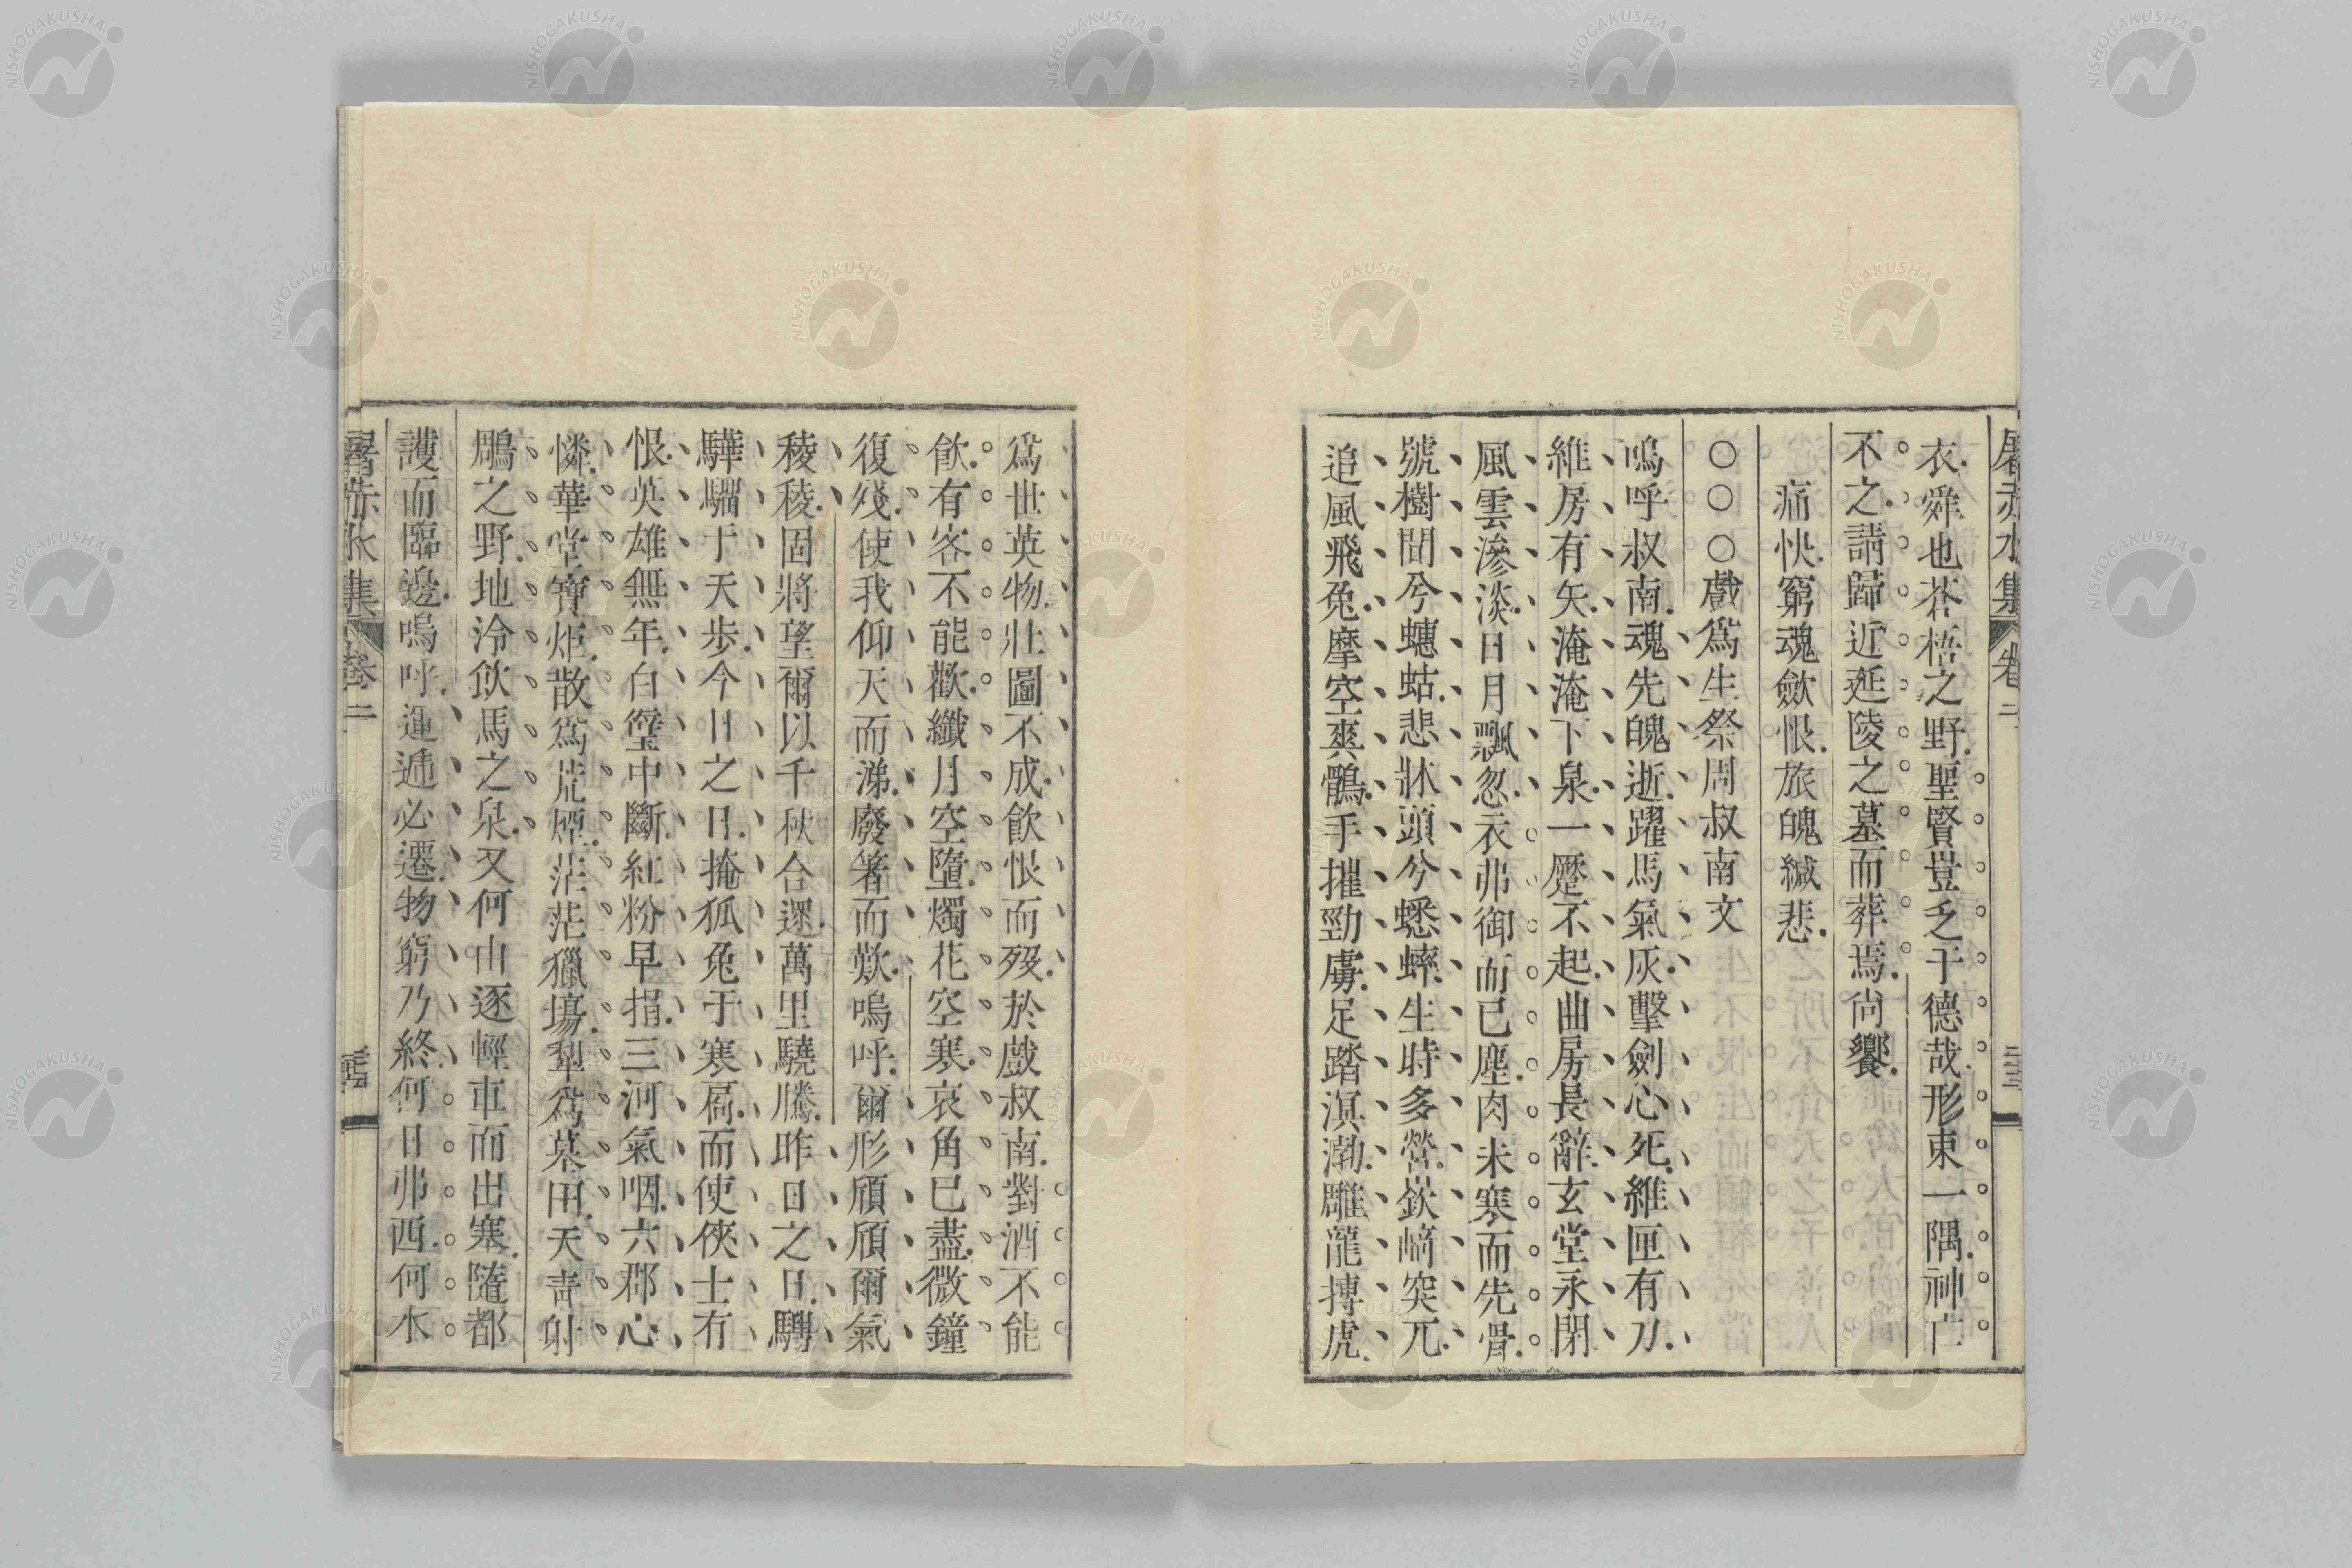 屠赤水集 卷二
衣舜也苍梧之野聖賢豈乏于德哉形束一隅神亡
不之請歸近延陵之墓而葬焉尙饗
痛快窮魂歛恨旅魄緘悲
○○○戲爲生祭周叔南文
嗚呼叔南魂先魄逝躍馬氣灰擊劍心死維匣有刀
維房有矢淹淹下泉一蹷不起曲房長辭玄堂永閉
風雲滲淡日月飄忽衣弗御而已塵肉未寒而先骨
號樹間兮蟪蛄悲牀頭兮蟋蟀生時多營嶔㟢突兀
追風飛兔摩空爽鶻手摧勁虜足踏溟渤雕龍搏虎
爲世英物壯圖不成飲恨而歿於戲叔南對酒不能
飲有客不能歡纖月空墮燭花空寒哀角已盡微鐘
復殘使我仰天而涕廢箸而歎嗚呼爾形頎頎爾氣
稜稜固將望爾以千秋合還萬里驍騰昨日之日騁
驊騮于天步今日之日掩狐兔于寒扃而使俠士有
恨英雄無年白璧中斷紅粉早捐三河氣咽六郡心
憐華堂寶炬散爲荒煙茫茫獵塲犁爲墓田天靑射
鵰之野地冷飲馬之泉又何由逐輕車而出塞隨都
護而臨邊嗚呼運遞必遷物窮乃終何日弗西何水
屠赤水集 卷二
NISHOGAKUSHA